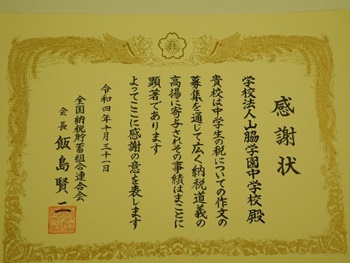 感謝状
学校法人山脇学園中学校 殿
貴校は中学生の税についての作文の
募集を通じて広く納税道義の
高揚に寄与されその事績はまことに
顕著であります
よってここに感謝の意を表します
令和四年十月三十一日
全国納税貯蓄組合連合会
会長 飯島賢二